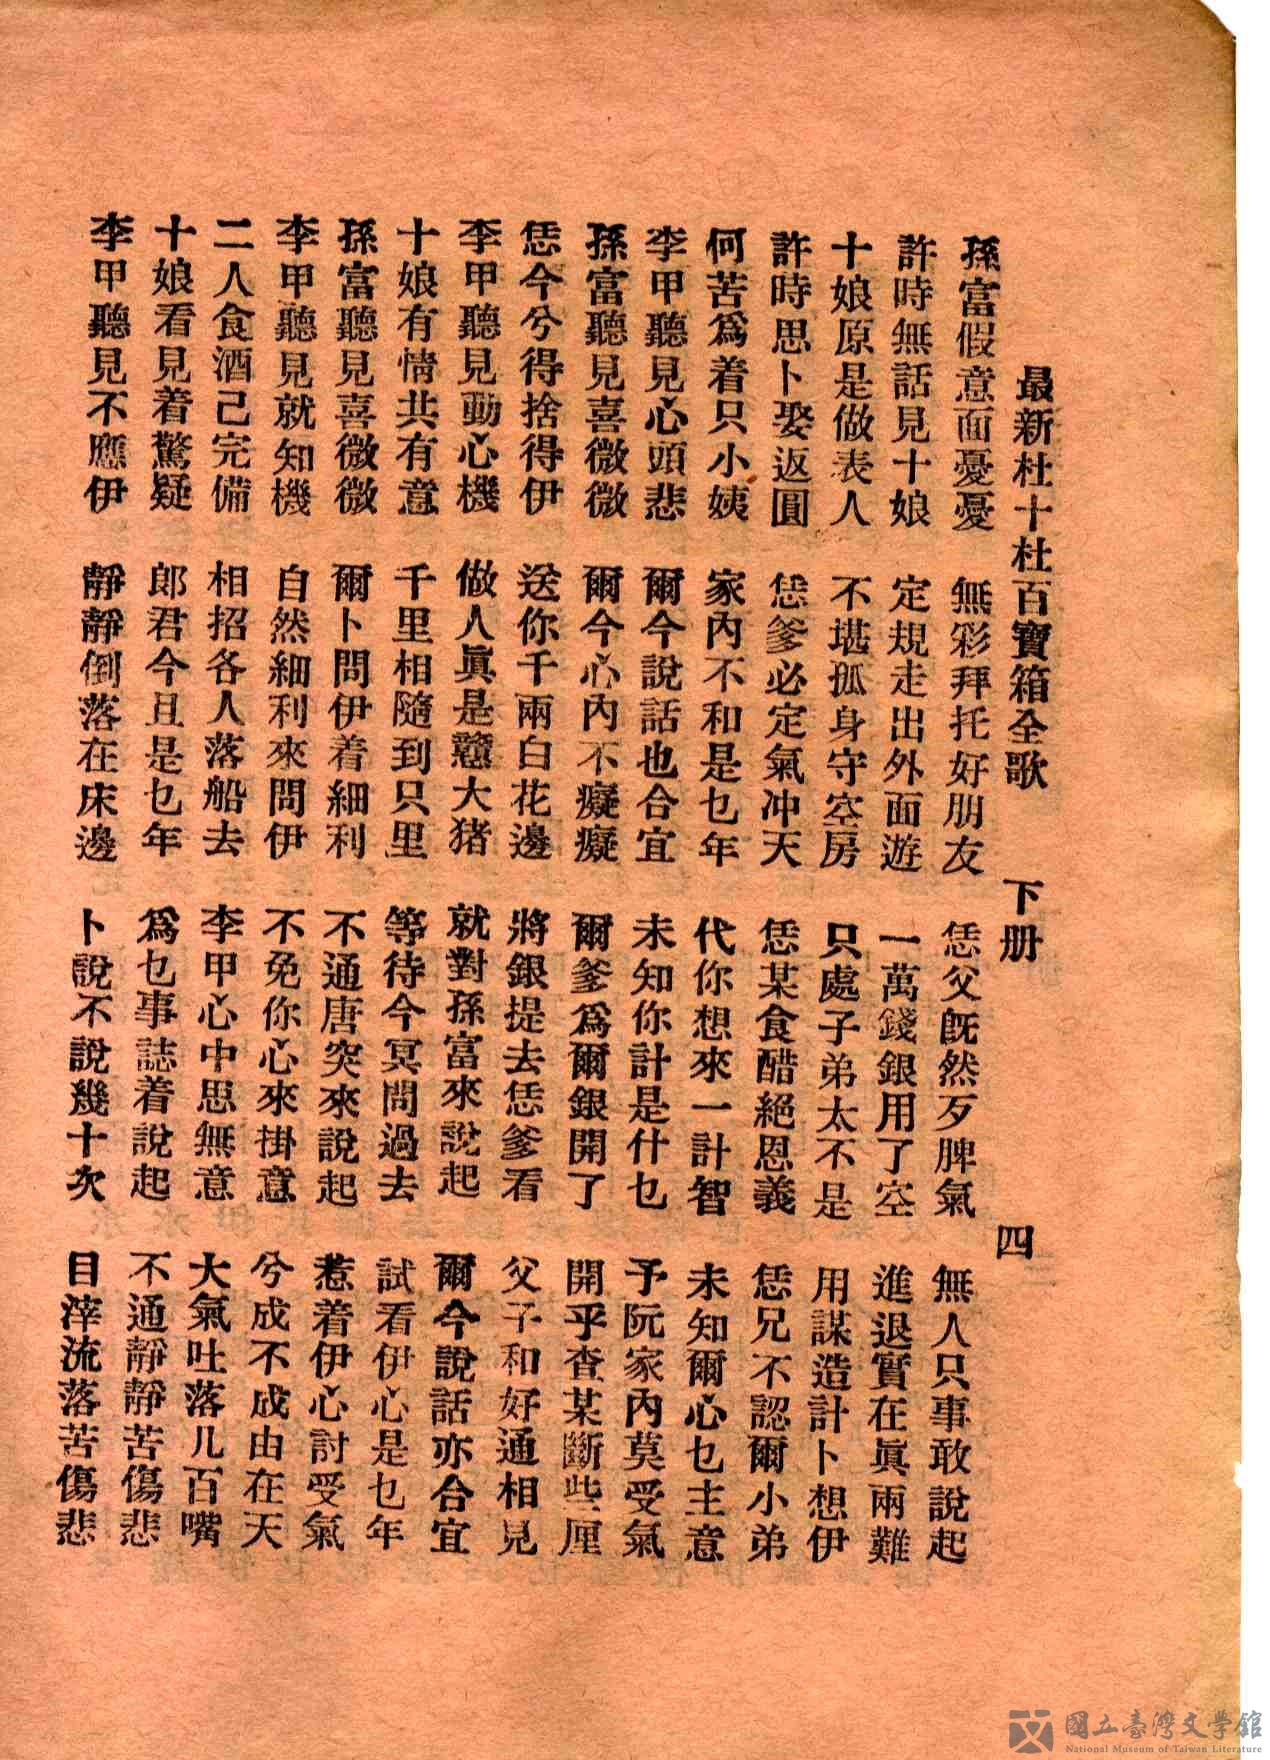 最新杜十杜百寶箱全歌 下册 四
孫富假意面憂憂 無彩拜托好朋友 恁父旣然歹脾氣 無人只事敢說起
許時無話見十娘 定規走出外面遊 一萬錢銀用了空 進退實在眞兩難
十娘原是做表人 不堪孤身守空房 只處子弟太不是 用謀造計卜想伊
許時思卜娶返圓 恁爹必定氣冲天 恁某食醋絕恩義 恁兄不認爾小弟
何苦爲着只小姨 家內不和是乜年 代你想來一計智 未知爾心乜主意
李甲聽見心頭悲 爾今說話也合宜 未知你計是什乜 予阮家內莫受氣
孫富聽見喜微微 爾今心內不癡癡 爾爹爲爾銀開了 開乎查某斷些厘
恁今兮得捨得伊 送你千兩白花邊 將銀提去恁爹看 父子和好通相見
李甲聽見動心機 做人眞是戇大猪 就對孫富來說起 爾今說話亦合宜
十娘有情共有意 千里相隨到只里 等待今冥問過去 試看伊心是乜年
孫富聽見喜微微 爾卜問伊着細利 不通唐突來說起 惹着伊心討受氣
李甲聽見就知機 自然細利來問伊 不免你心來掛意 兮成不成由在天
二人食酒己完備 相招各人落船去 李甲心中思無意 大氣吐落几百嘴
十娘看見着驚疑 郎君今且是乜年 爲乜事誌着說起 不通靜靜苦傷悲
李甲聽見不應伊 靜靜倒落在床邊 卜說不說幾十次 目滓流落苦傷悲
國立臺灣文學館
National Museum of Taiwan Literature